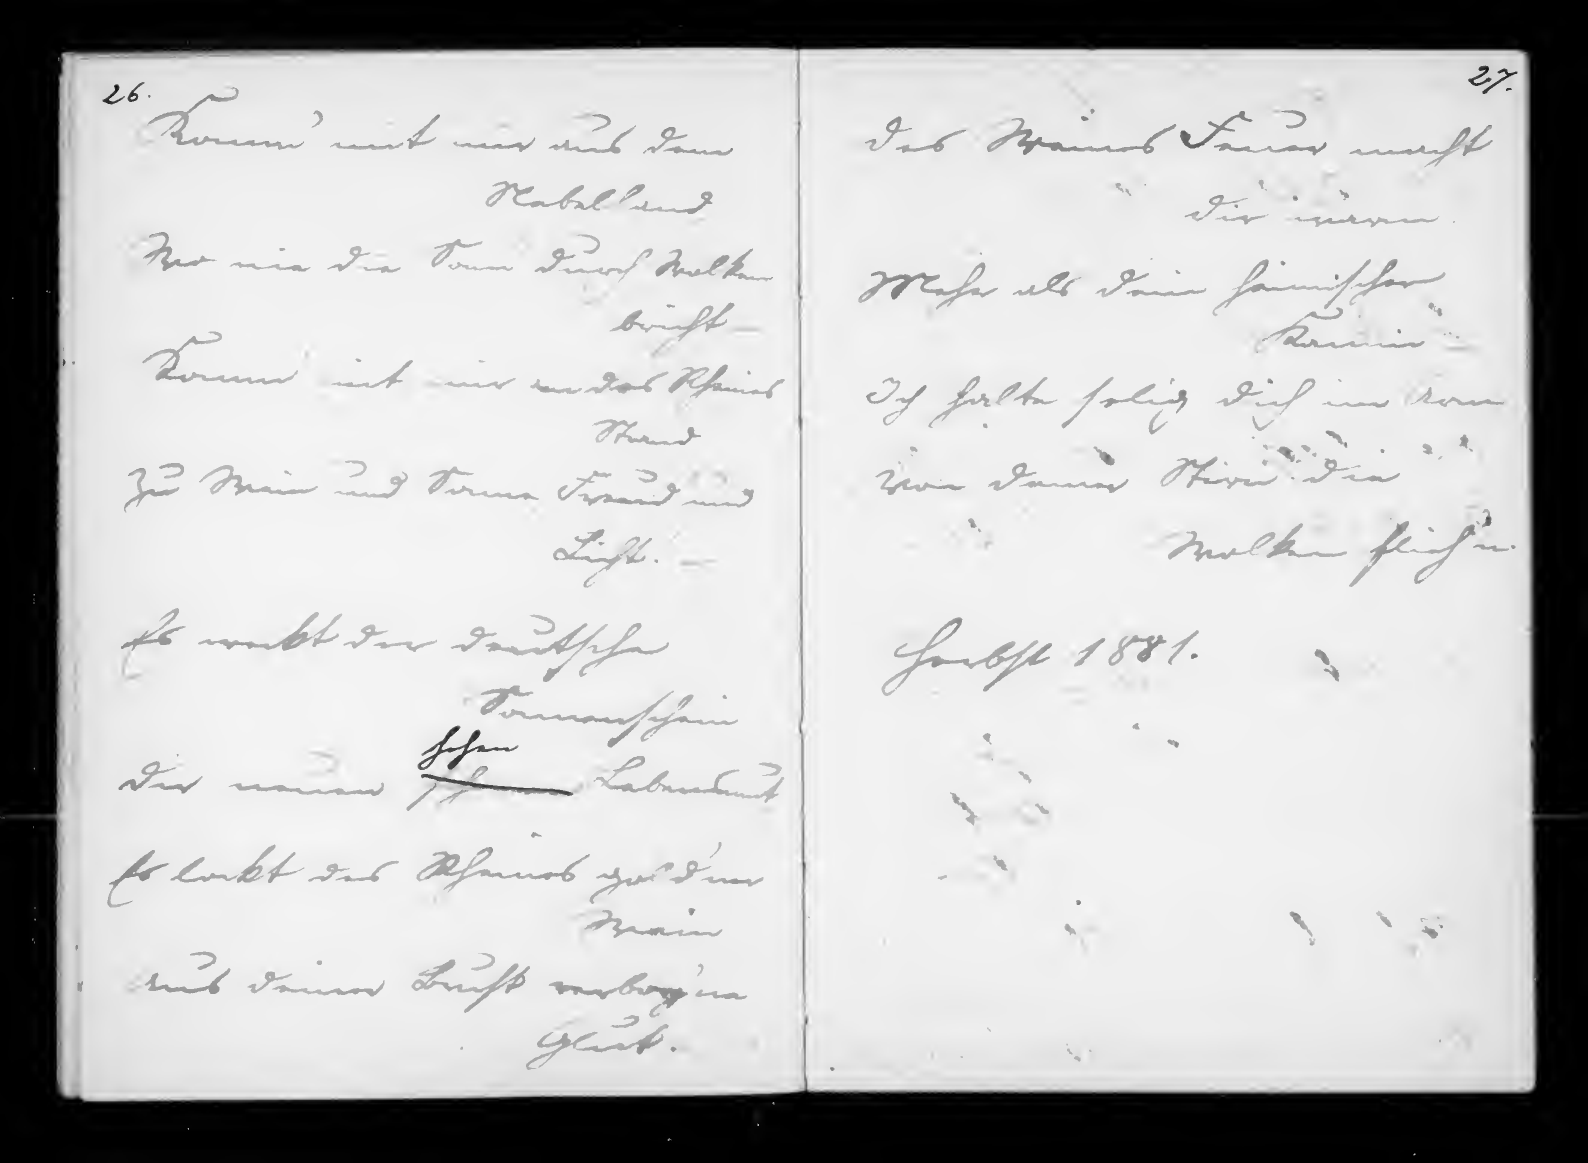 26.
Komm' mit mir aus dem
Nebelland
Wo nie die Sonn durch Wolken
bricht –
Komm' mit mir an des Rheines
Strand
Zu Wein und Sonne Freud und
Licht. –
Es weckt der deutsche
Sonnenschein
dir neuen hohen Lebensmut
Es lockt des Rheines gold'ner
Wein
aus deiner Brust verborg'ne
Glut.
27.
des Weines Feuer macht
dir warm
Mehr als dein heimischer
Kamin –
Ich halte selig dich im Arm
Von deiner Stirn die
Wolken flieh'n.
Herbst 1881.